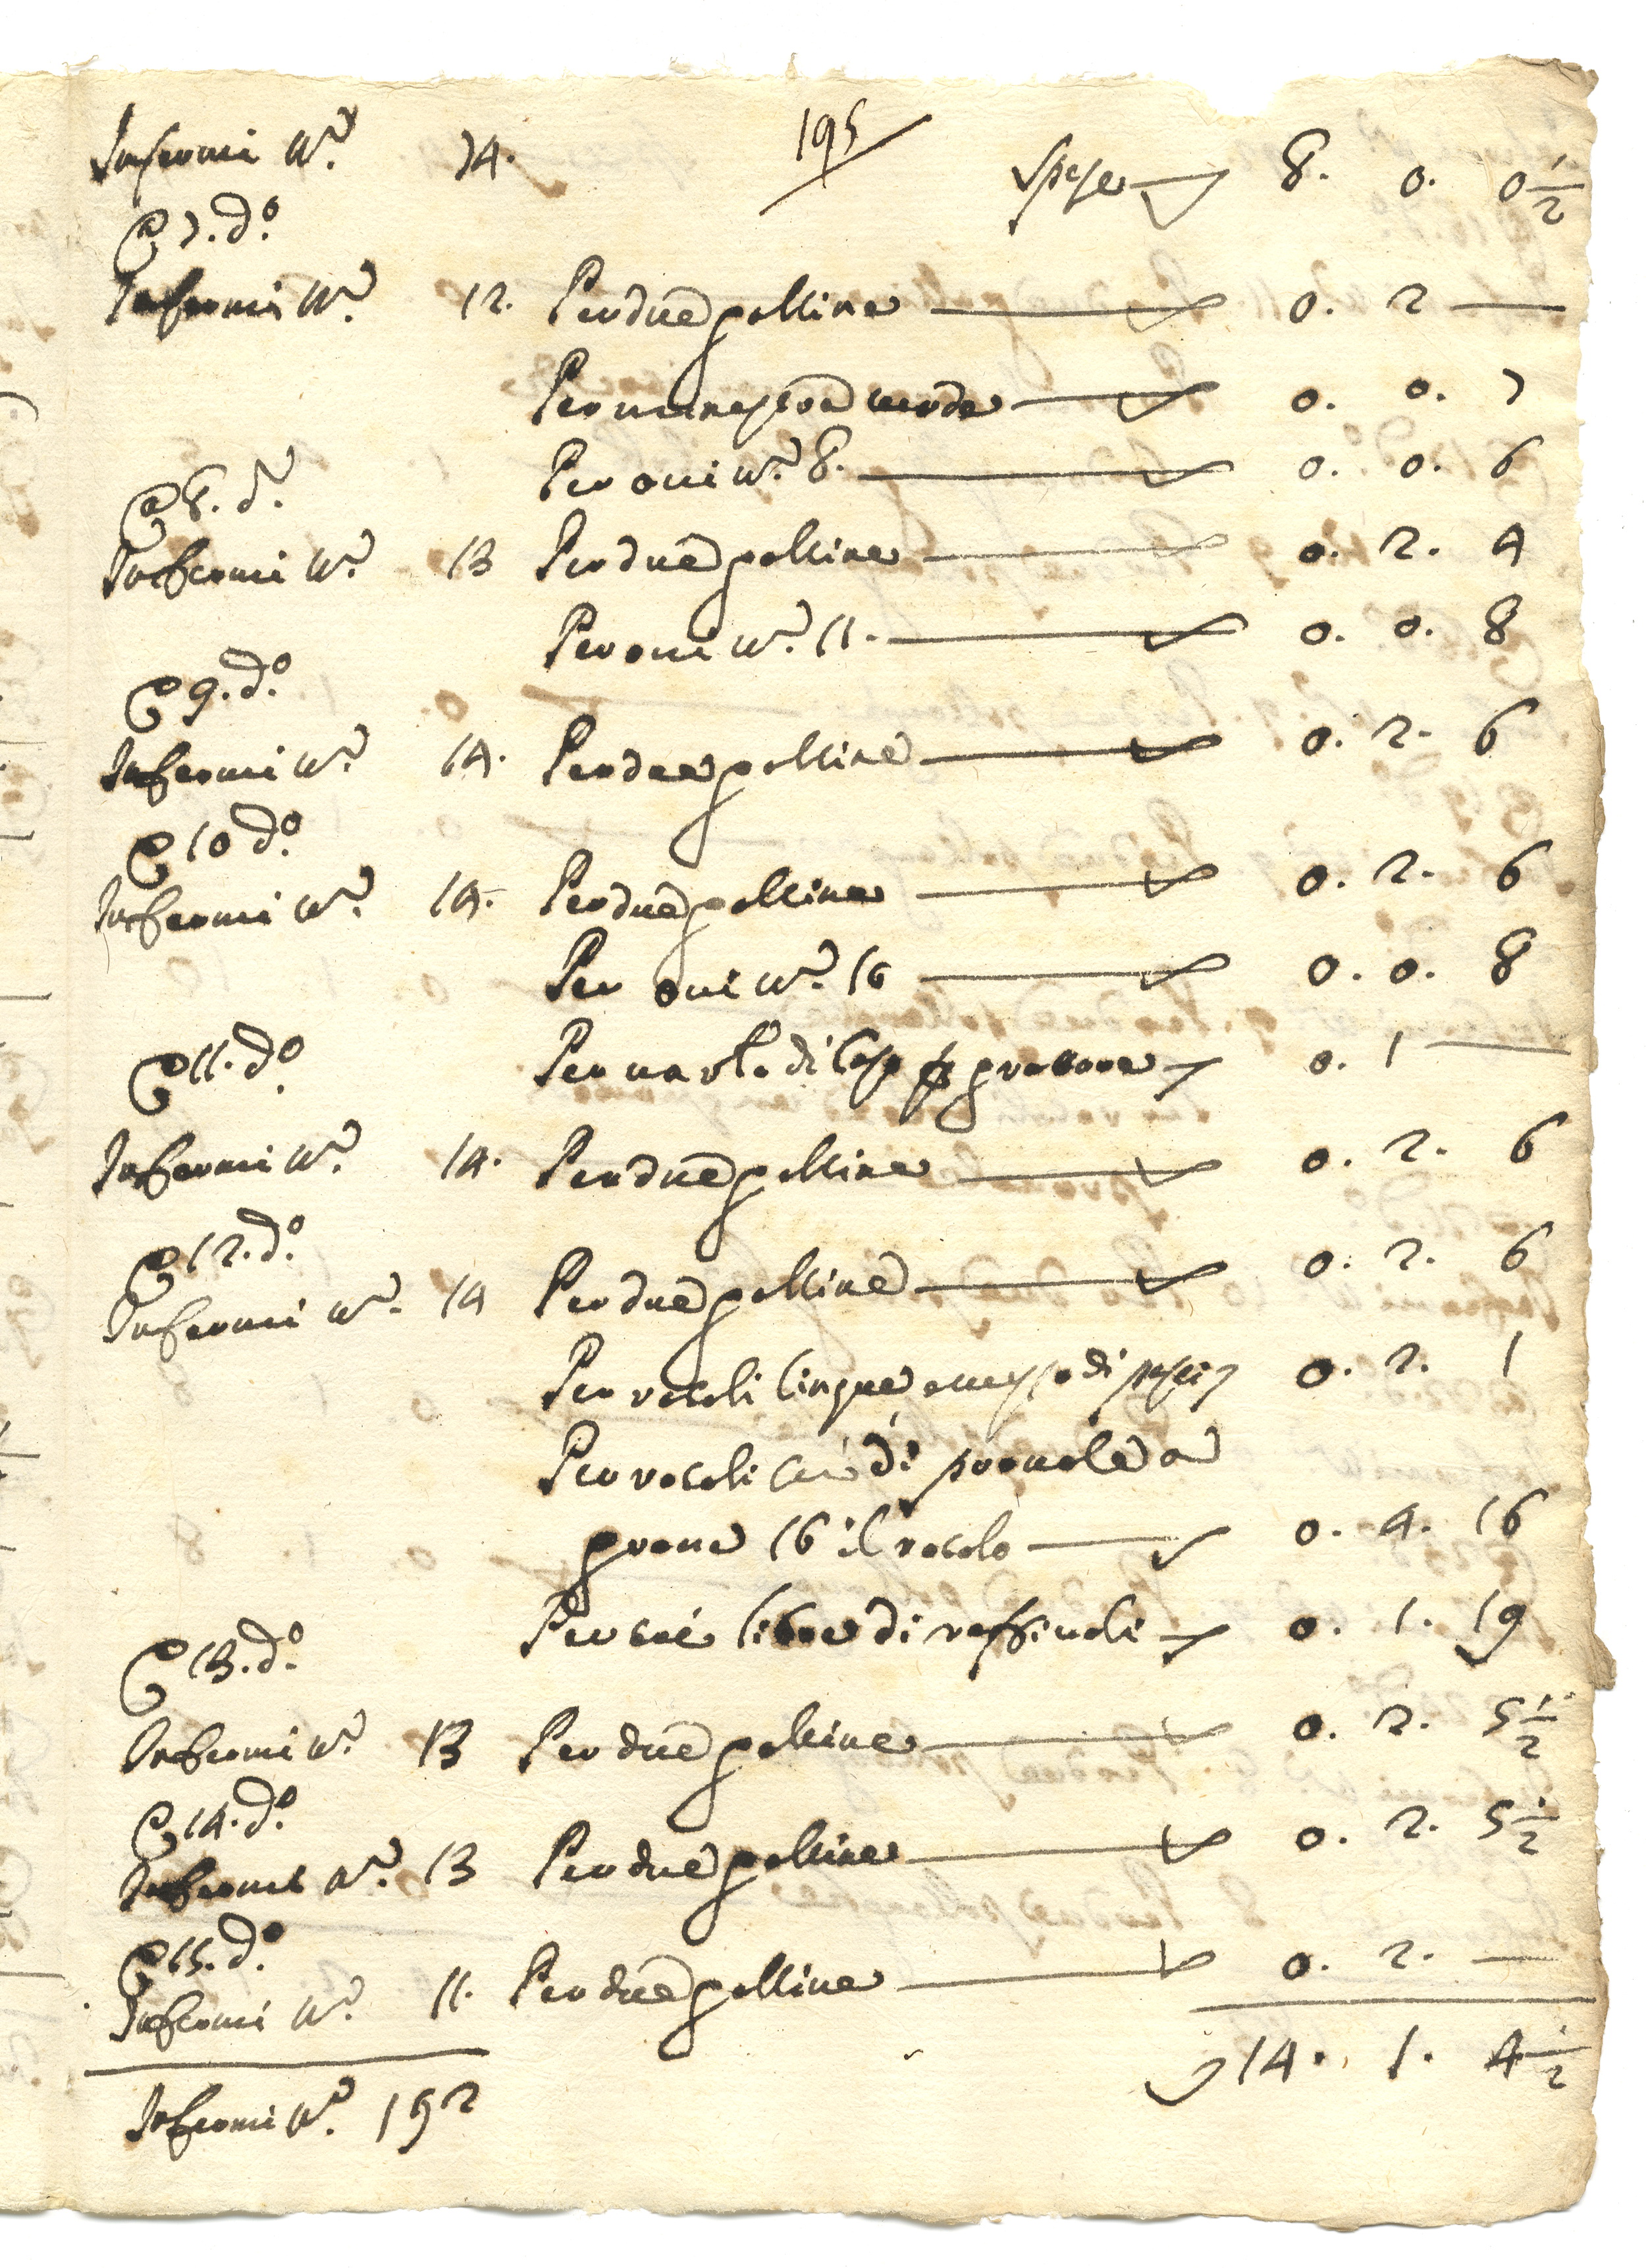 195
Infermi n.º 74. Spese 8. 0. 0 1/2
A 7. d.º
Infermi n.º 12. Per due galline 0. 2 —
Per minestra verde 0. 0. 7
Per ovi n.º 8. 0. 0. 6
A 8. d.º
Infermi n.º 13 Per due galline 0. 2. 4
Per ovi n.º 11. 0. 0. 8
A 9. d.º
Infermi n.º 14. Per due galline 0. 2. 6
A 10 d.º
Infermi n.º 14. Per due galline 0. 2. 6
Per ovi n.º 16 0. 0. 8
Per di 0. 1 —
A 11. d.º
Infermi n.º 14. Per due galline 0. 2. 6
A 12. d.º
Infermi n.º 14 Per due galline 0. 2. 6
Per rotoli cinque e mezzo di 0. 2. 1
Per rotoli sei di a
grana 16 il rotolo 0. 4. 16
Per sei libre di raffiuoli 0. 1. 19
A 13. d.º
Infermi n.º 13 Per due galline 0. 2. 5 1/2
A 14. d.º
Infermi n.º 13 Per due galline 0. 2. 5 1/2
A 15. d.º
Infermi n.º 11. Per due galline 0. 2. —
14. 1. 4 1/2
Infermi n.º 192